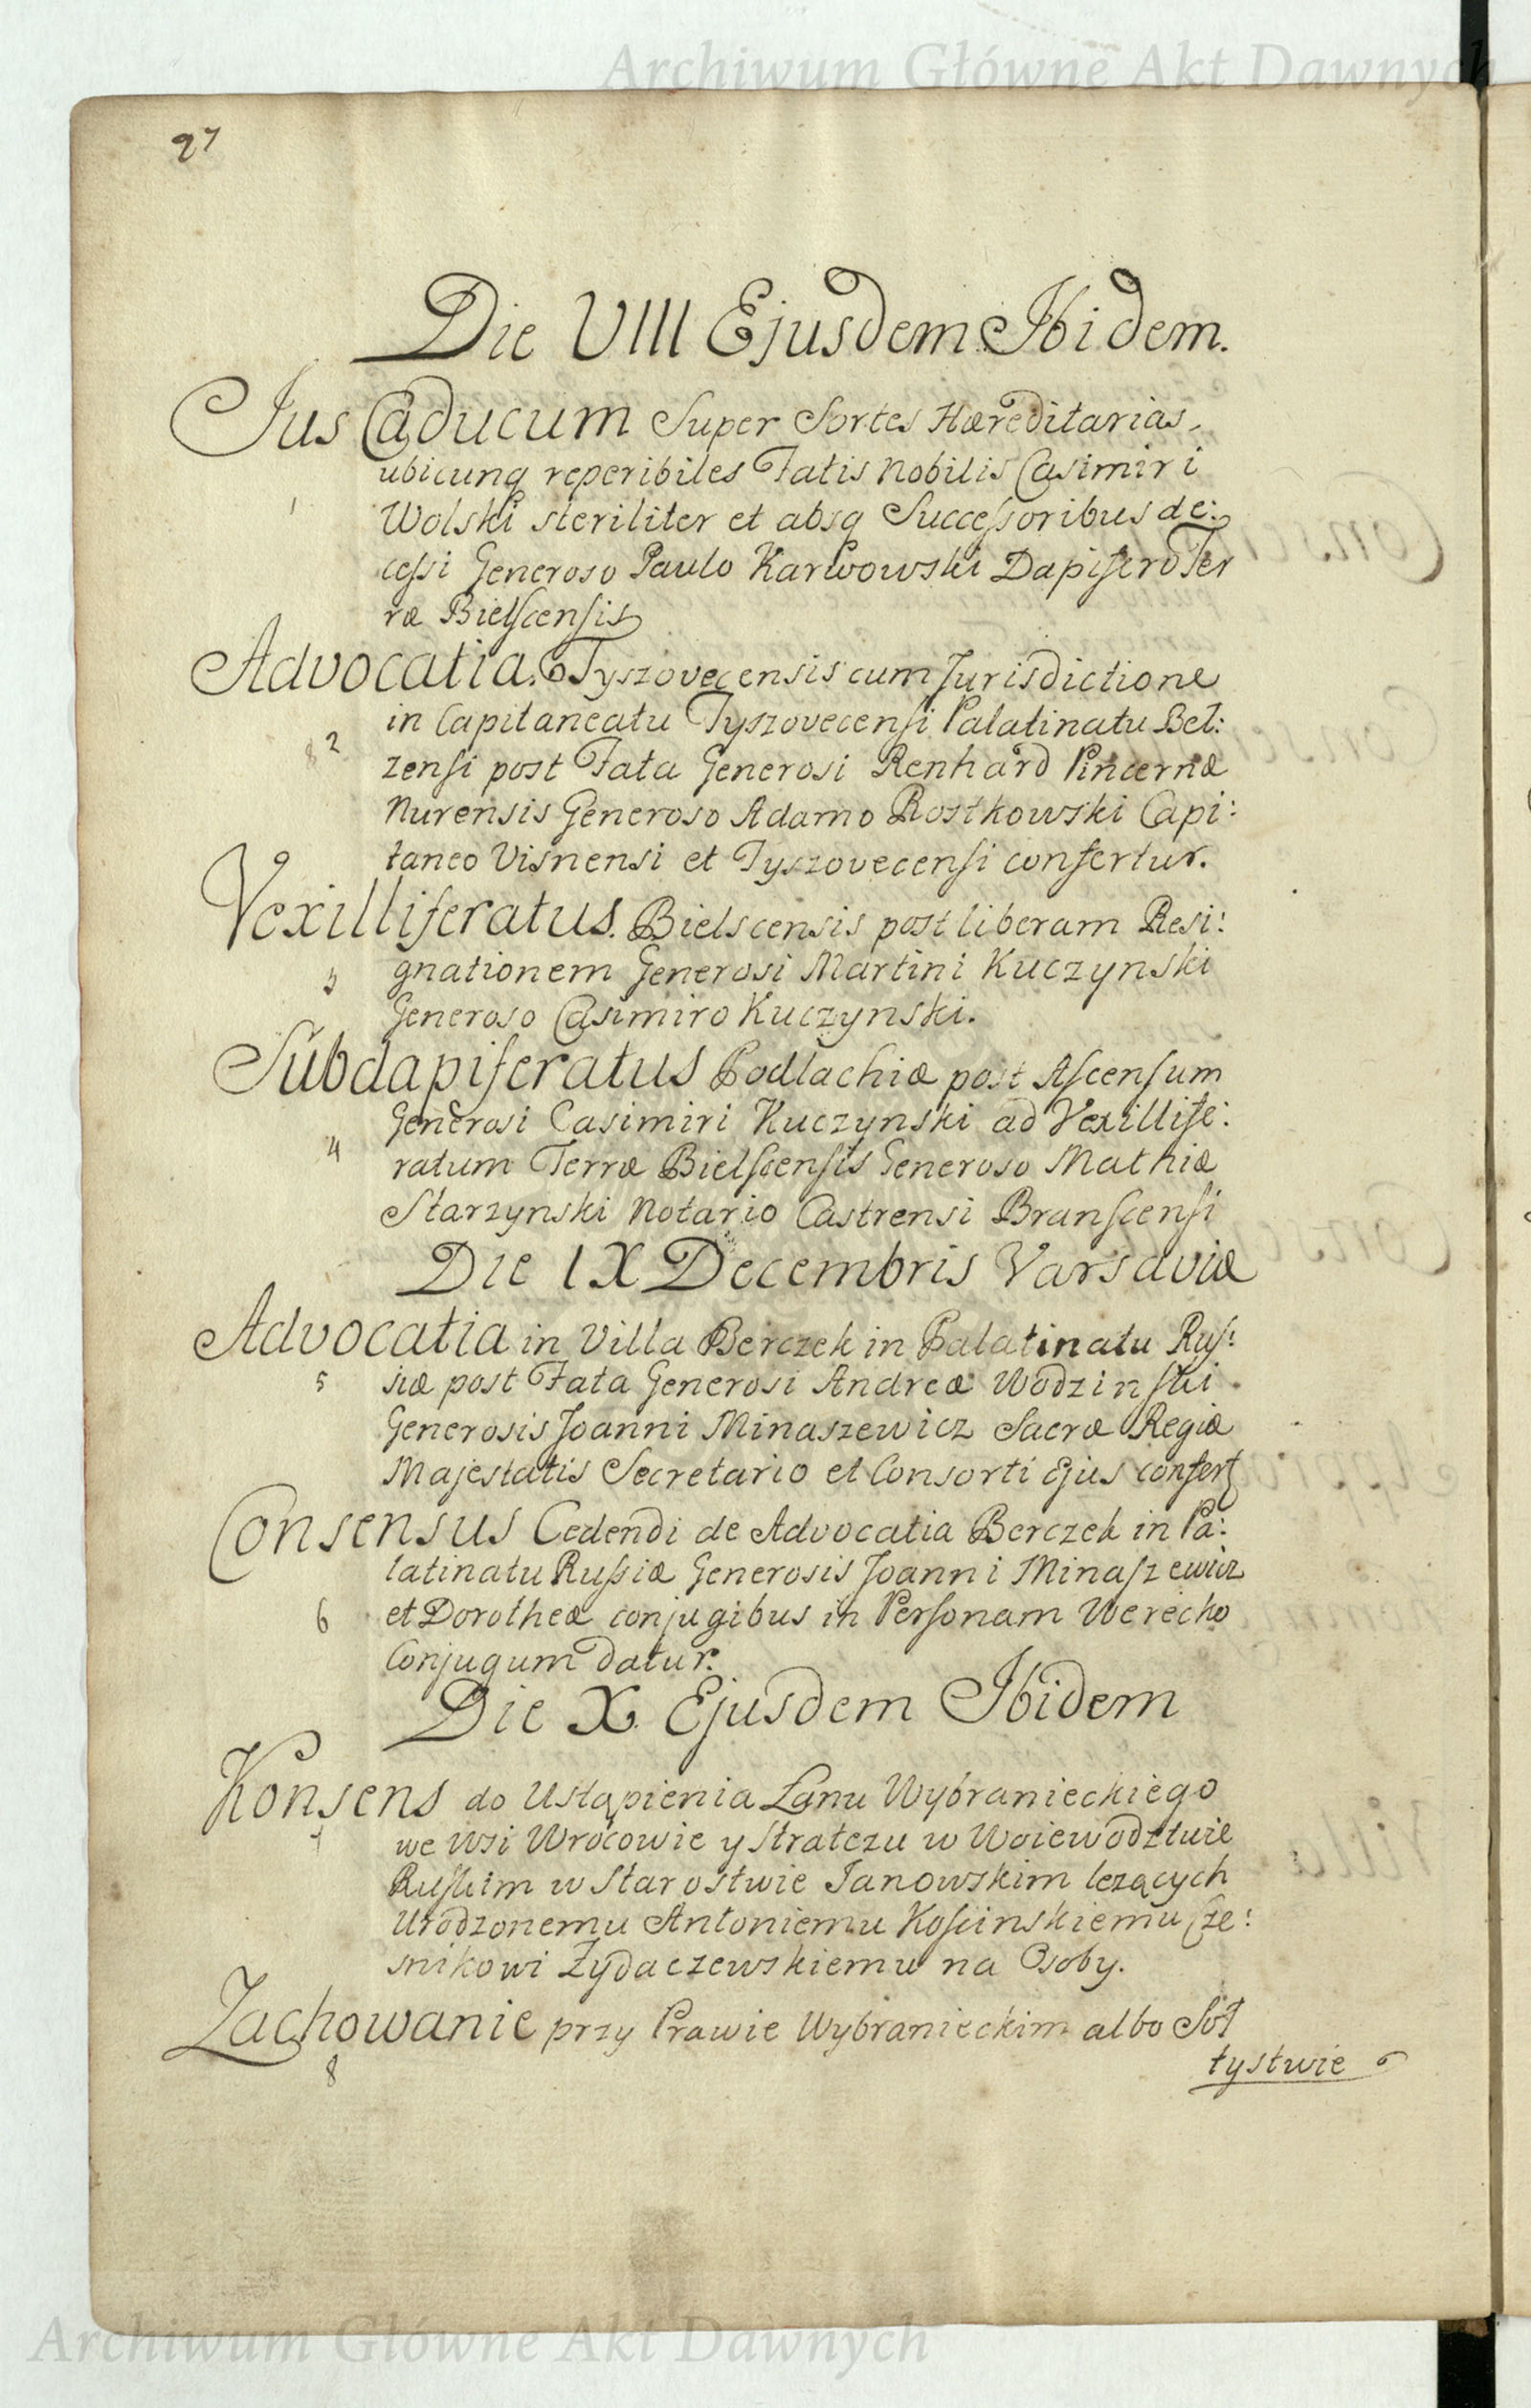 Archiwum Główne Akt Dawnych
27
Die VIII Ejusdem Ibidem.
Jus Caducum Super Sortes Hæreditarias,
ubicunq reperibiles Fatis Nobilis Casimiri
1
Wolski steriliter et absq Successoribus de:
cessi Generoso Paulo Karwowski Dapifero Ter
ræ Bielscensis
Advocatia Tyszovecensis cum Jurisdictione
in Capitaneatu Tyszovecensi Palatinatu Bel:
2
zensi post Fata Generosi Renhard Pincernæ
Nurensis Generoso Adamo Rostkowski Capi:
taneo Visnensi et Tyszovecensi confertur.
Vexilliferatus. Bielscensis post liberam Resi:
3 gnationem Generosi Martini Kuczynski
Generoso Casimiro Kuczynski.
Subdapiferatus Podlachiæ post Ascensum
Generosi Casimiri Kuczynski ad Vexillife:
4 ratum Terræ Bielscensis Generoso Mathiæ
Starzynski Notario Castrensi Branscensi
Die IX Decembris Varsaviæ
Advocatia in Villa Berczek in Palatinatu Rus:
5 siæ post Fata Generosi Andreæ Wodzinski
Generosis Joanni Minaszewicz Sacræ Regiæ
Majestatis Secretario et Consorti Ejus confert
Consensus Cedendi de Advocatia Berczek in Pa:
latinatu Russiæ Generosis Joanni Minaszewicz
6 et Dorotheæ conjugibus in Personam Werecko
Conjugum datur.
Die X. Ejusdem Ibidem
Konsens do Ustąpienia Łanu Wybranieckiego
7 we Wsi Wrocowie y Stratczu w Woiewodztwie
Ruskim w Starostwie Janowskim lezących
Urodzonemu Antoniemu Koscinskiemu Cze:
snikowi Zydaczewskiemu na Osoby.
Zachowanie przy Prawie Wybranieckim albo Soł
8
tystwie
Archiwum Główne Akt Dawnych